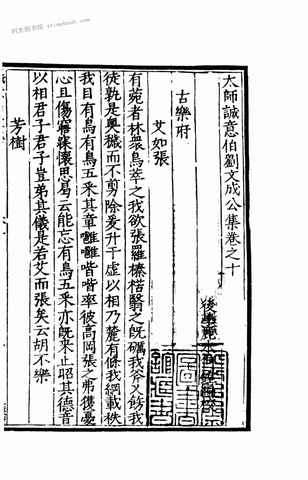 太師誠意伯劉文成公集卷之十
古樂府
艾如張
有菀者林眾鳥萃之我欲張羅榛楛翳之既礪我斧又飭我
徒孰是奧穢而不剪除爰升于虛以相乃麓有條我綱載秩
我目有鳥有鳥五采其章噰噰喈喈率彼高岡張之弗獲憂
心且傷寤寐懷思曷云能忘有鳥五采亦既來止昭其德音
以相君子君子豈弟其儀是若艾而張矣云胡不樂
芳樹